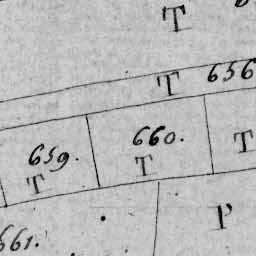 T
T 656
659.
T
660.
T
T
P
661.